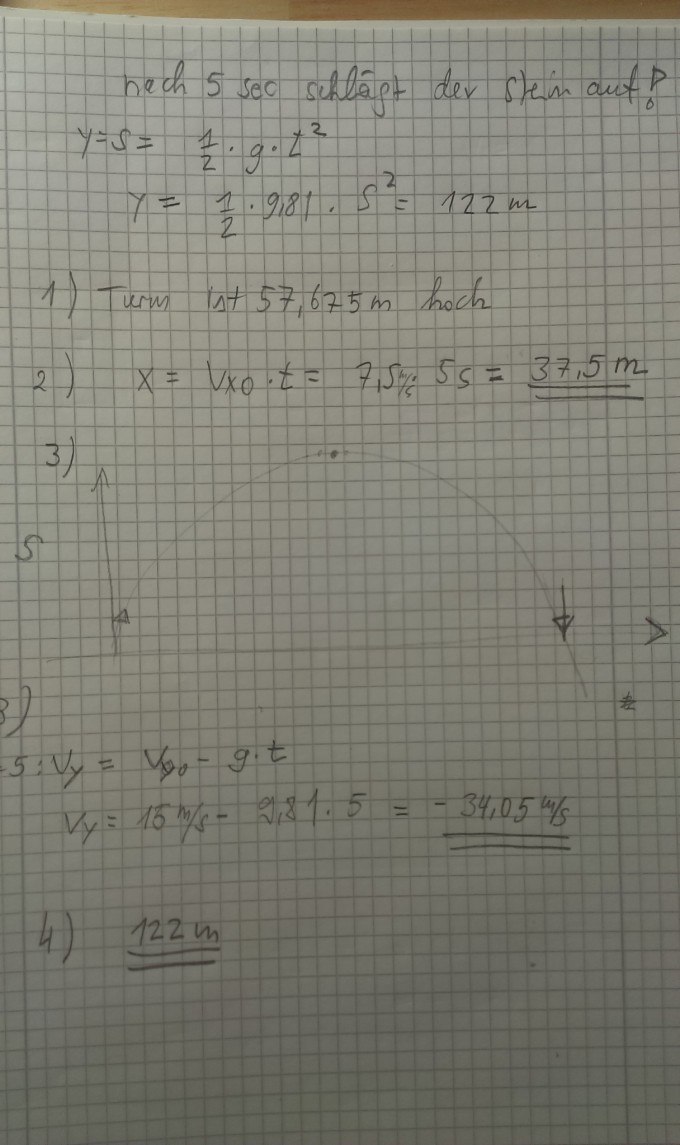 nach 5 sec schlägt der Stein auf!
y=s= 1/2 · g · t²
y = 1/2 · 9,81 · 5² = 122 m
1) Turm ist 57,675 m hoch
2) x = Vx0 · t = 7,5 m/s · 5s = 37,5 m
3)
S
3)
5: Vy = Vy0 - g·t
Vy = 15 m/s - 9,81 · 5 = - 34,05 m/s
4) 122 m